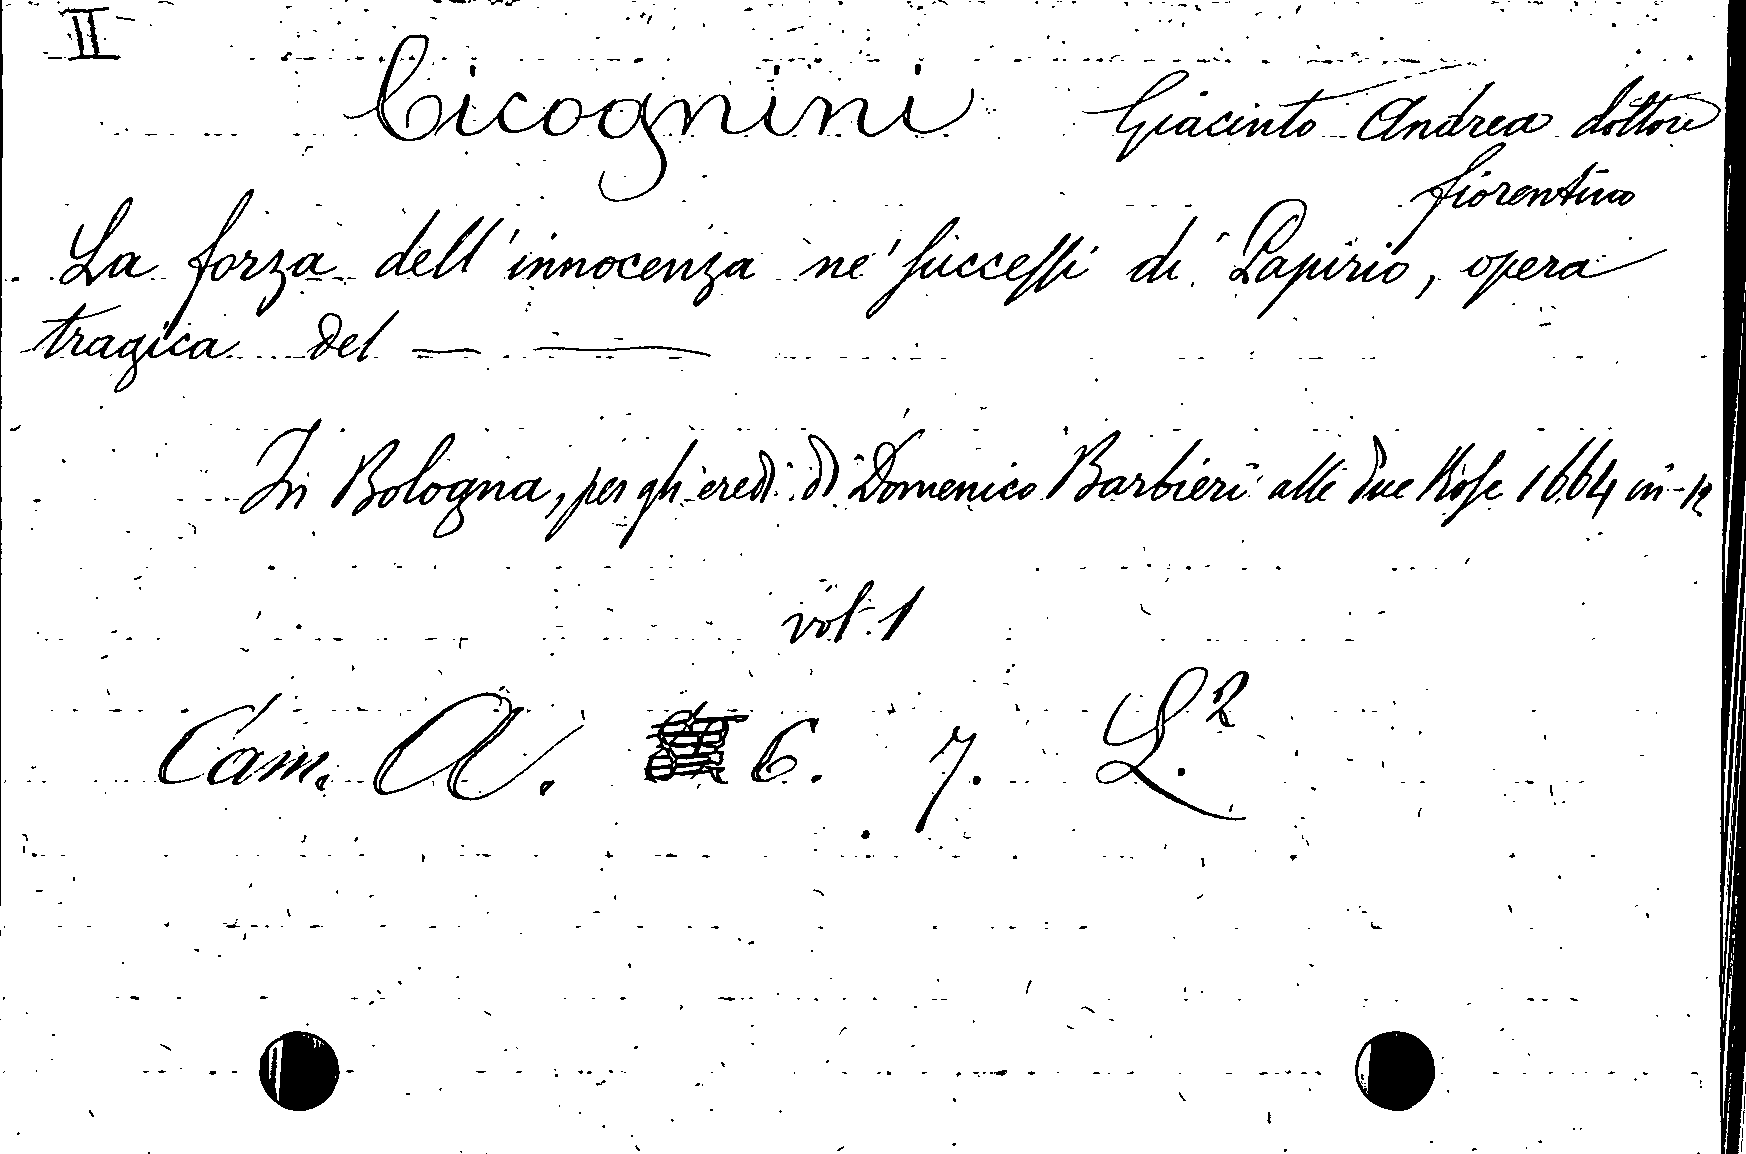 II
Cicognini Giacinto Andrea dottore
fiorentino
La forza dell'innocenza ne' successi di Papirio, opera
tragica del — —
In Bologna, per gli eredi di Domenico Barbieri alle due Rose 1664 in-12
vol. 1
Cam. A. 6. 7. L.2